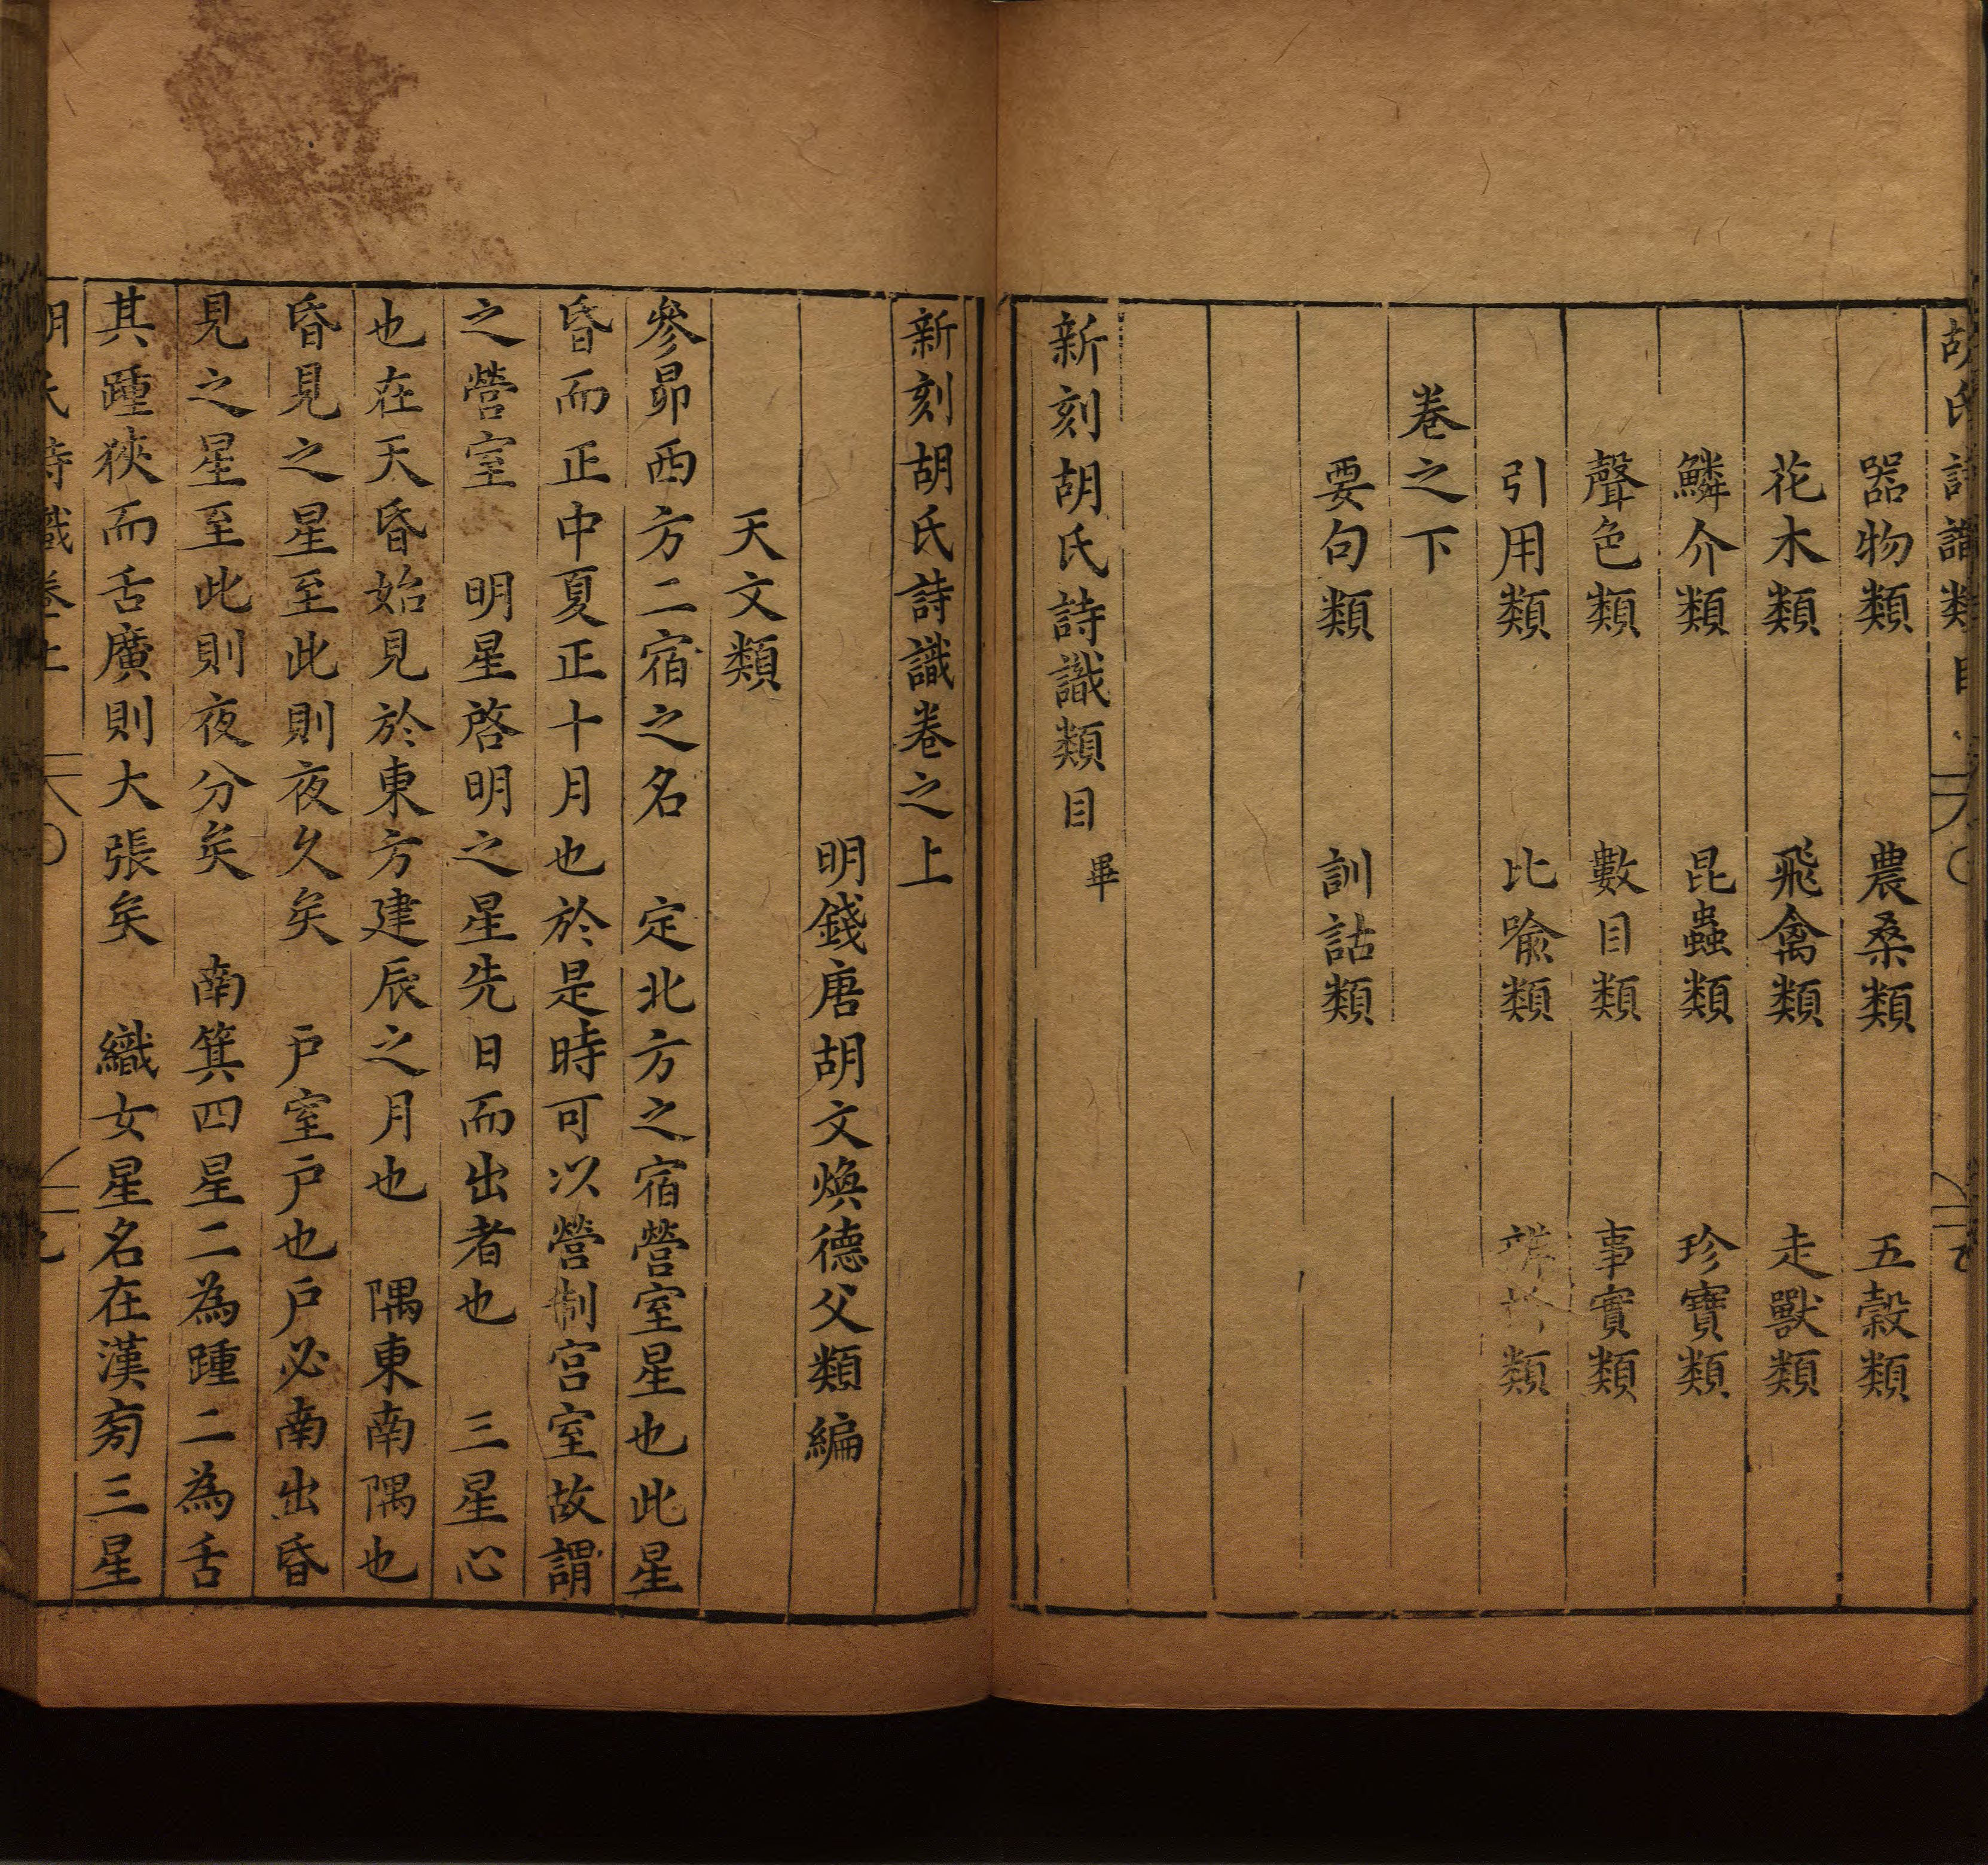 胡氏詩識類目
器物類 農桑類 五穀類
花木類 飛禽類 走獸類
鱗介類 昆蟲類 珍寶類
聲色類 數目類 事實類
引用類 比喻類 類
卷之下
要句類 訓詁類
新刻胡氏詩識類目 畢
新刻胡氏詩識卷之上
明錢唐胡文煥德父類編
天文類
參昴西方二宿之名 定北方之宿營室星也此星
昏而正中夏正十月也於是時可以營制宮室故謂
之營室 明星啓明之星先日而出者也 三星心
也在天昏始見於東方建辰之月也 隅東南隅也
昏見之星至此則夜久矣 戶室戶也戶必南出昏
見之星至此則夜分矣 南箕四星二為踵二為舌
其踵狹而舌廣則大張矣 織女星名在漢旁三星
胡氏詩識卷上